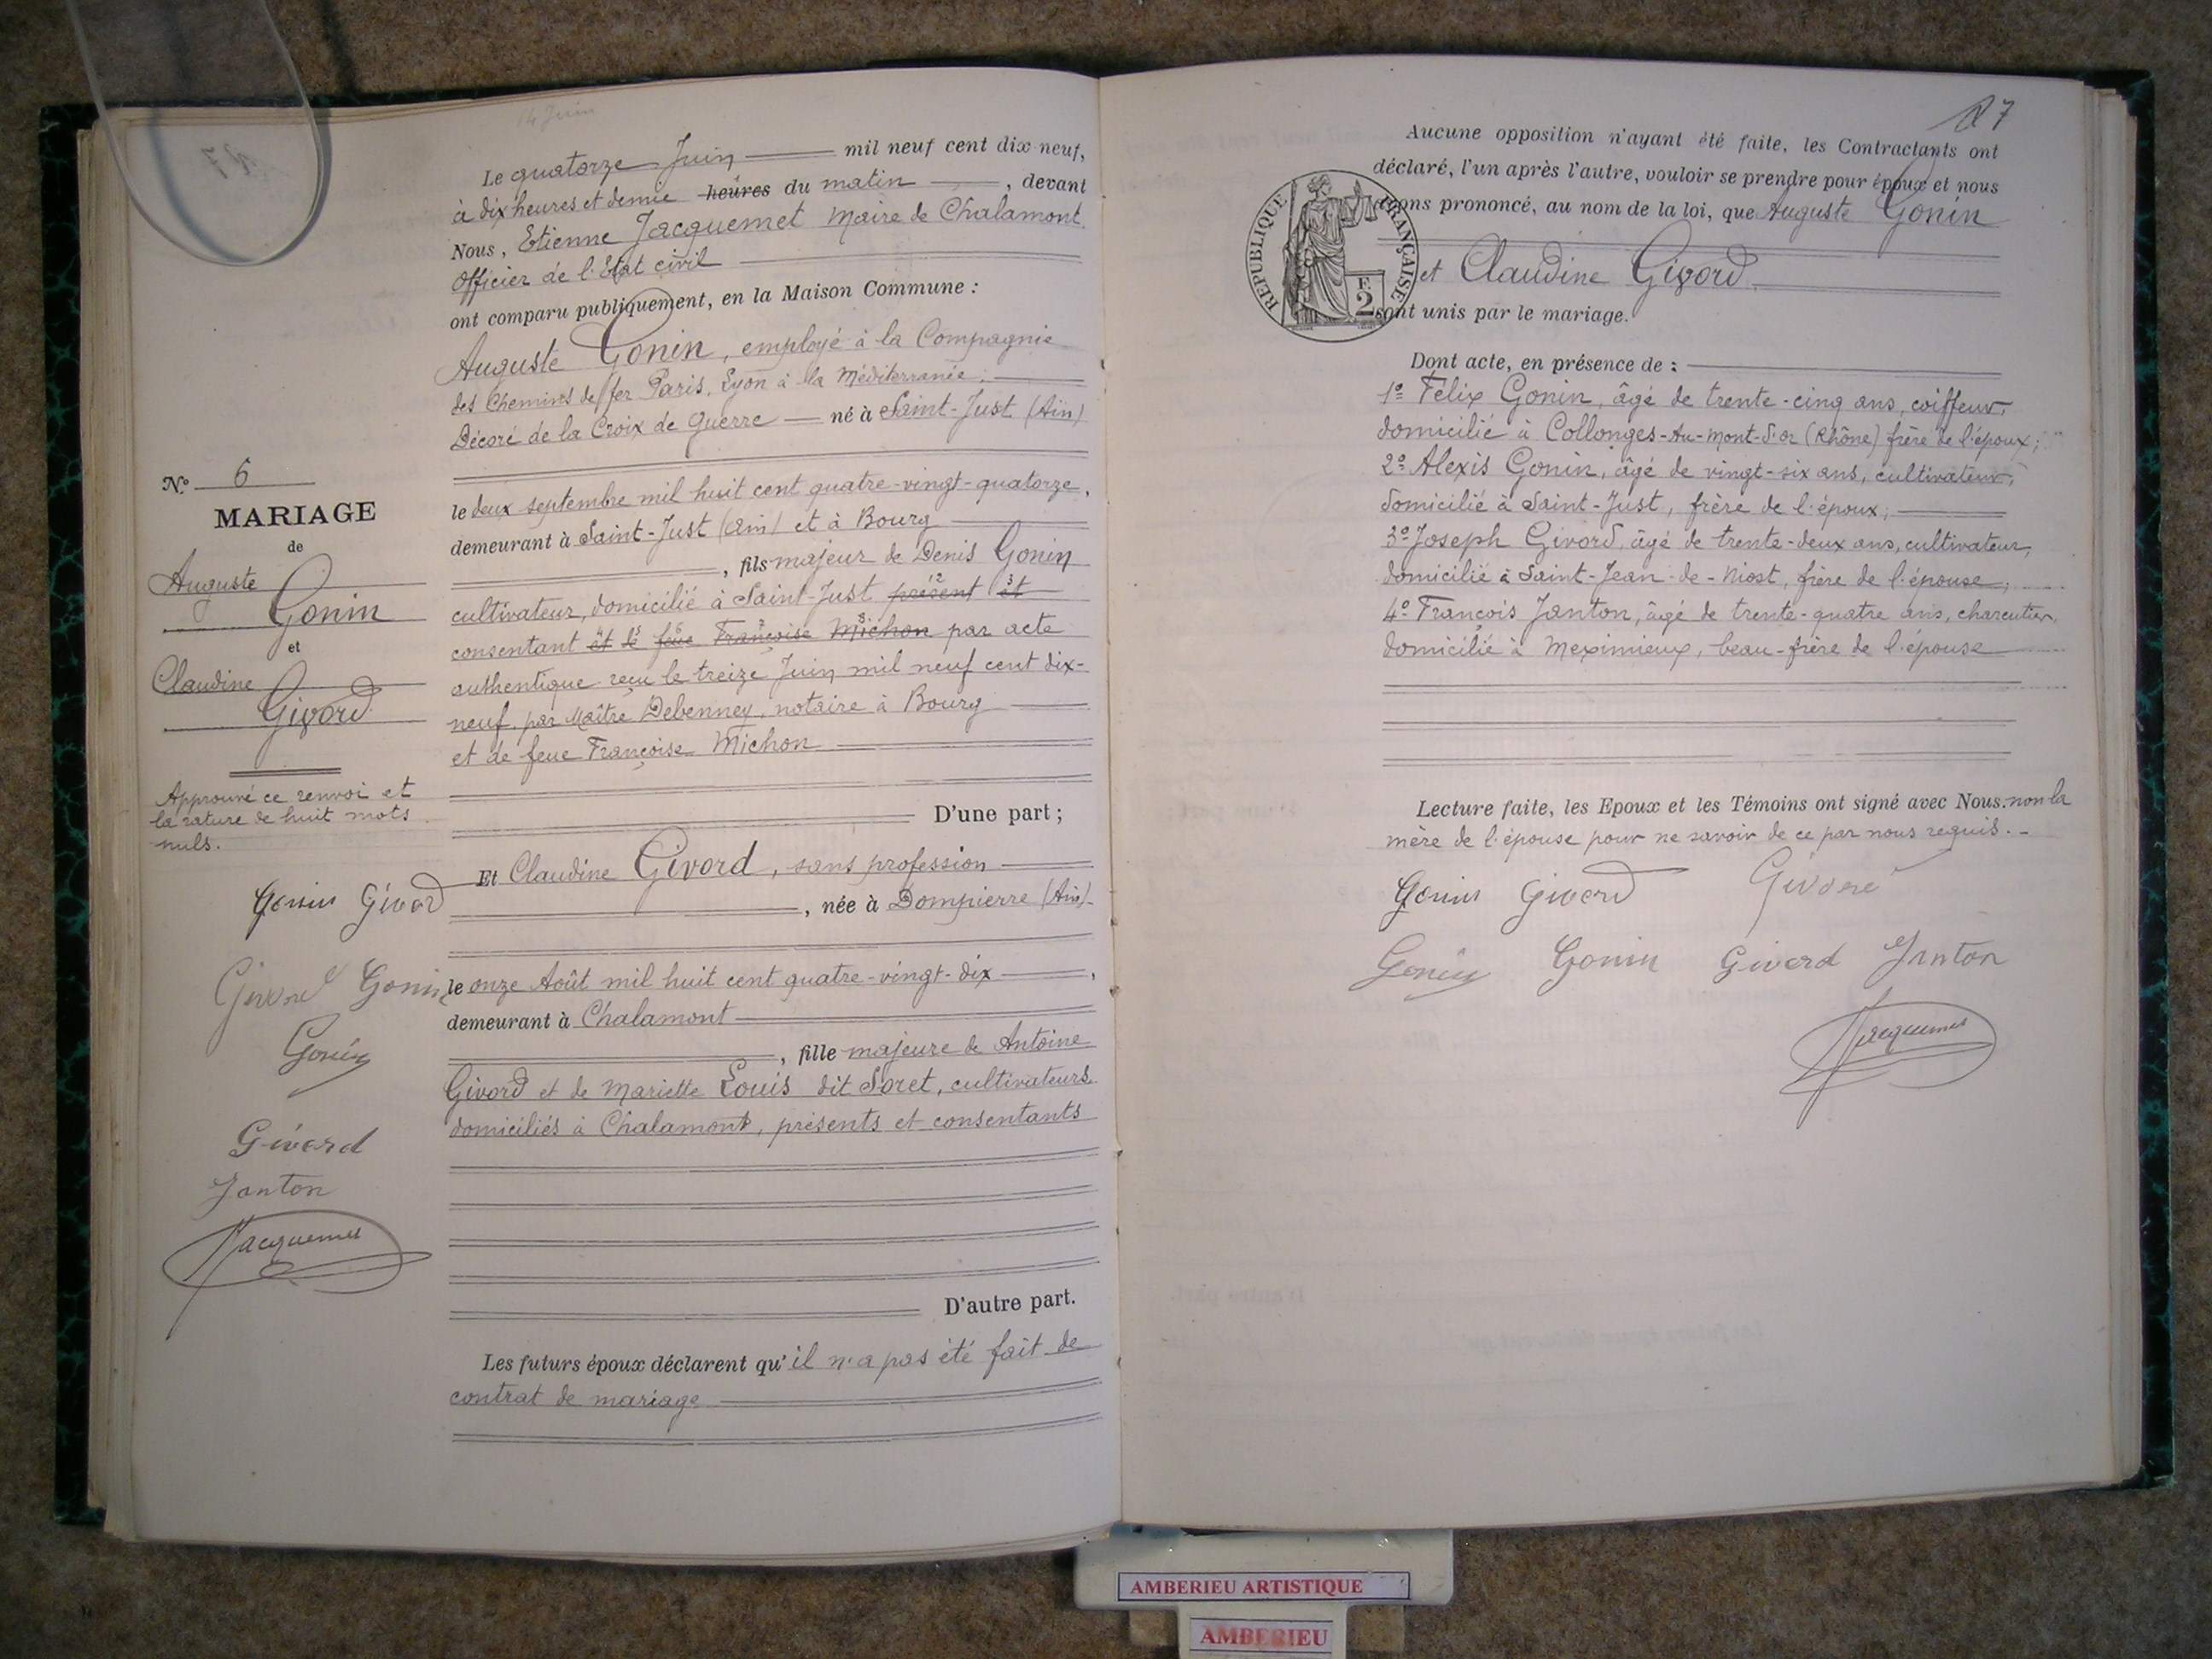 14 Juin
Le quatorze Juin mil neuf cent dix-neuf,
à dix heures et demie heures du matin, devant
Nous, Etienne Jacquemet Maire de Chalamont
Officier de l'Etat civil
ont comparu publiquement, en la Maison Commune :
Auguste Gonin, employé à la Compagnie
des Chemins de fer Paris, Lyon à la Méditerranée;
Décoré de la Croix de Guerre né à Saint-Just (Ain)
le deux septembre mil huit cent quatre-vingt-quatorze,
demeurant à Saint-Just (Ain) et à Bourg
, fils majeur de Denis Gonin
cultivateur, domicilié à Saint-Just présent et
consentant et de feue Françoise Michon par acte
authentique reçu le treize Juin mil neuf cent dix-
neuf, par Maître Debenney, notaire à Bourg
et de feue Françoise Michon
D'une part ;
Et Claudine Givord, sans profession
, née à Dompierre (Ain)
le onze Août mil huit cent quatre-vingt-dix,
demeurant à Chalamont
, fille majeure de Antoine
Givord et de Mariette Louis dit Soret, cultivateurs
domiciliés à Chalamont, présents et consentants
D'autre part.
Les futurs époux déclarent qu'il n'a pas été fait de
contrat de mariage
N° 6
MARIAGE
de
Auguste
Gonin
et
Claudine
Givord
Approuvé ce renvoi et
la rature de huit mots
nuls.
Gonin Givord
Givord Gonin
Gonin
Givord
Janton
Jacquemet
27
Aucune opposition n'ayant été faite, les Contractants ont
déclaré, l'un après l'autre, vouloir se prendre pour époux et nous
avons prononcé, au nom de la loi, que Auguste Gonin
et Claudine Givord
sont unis par le mariage.
REPUBLIQUE FRANÇAISE
F.
2
Dont acte, en présence de :
1° Félix Gonin, âgé de trente-cinq ans, coiffeur,
domicilié à Collonges-Au-Mont-d'or (Rhône) frère de l'époux;
2° Alexis Gonin, âgé de vingt-six ans, cultivateur,
domicilié à Saint-Just, frère de l'époux;
3° Joseph Givord, âgé de trente-deux ans, cultivateur,
domicilié à Saint-Jean-de-Niost, frère de l'épouse;
4° François Janton, âgé de trente-quatre ans, charcutier,
domicilié à Meximieux, beau-frère de l'épouse
Lecture faite, les Epoux et les Témoins ont signé avec Nous. non la
mère de l'épouse pour ne savoir de ce par nous requis.
Gonin Givord Givord
Gonin Gonin Givord Janton
Jacquemet
AMBERIEU ARTISTIQUE
AMBERIEU